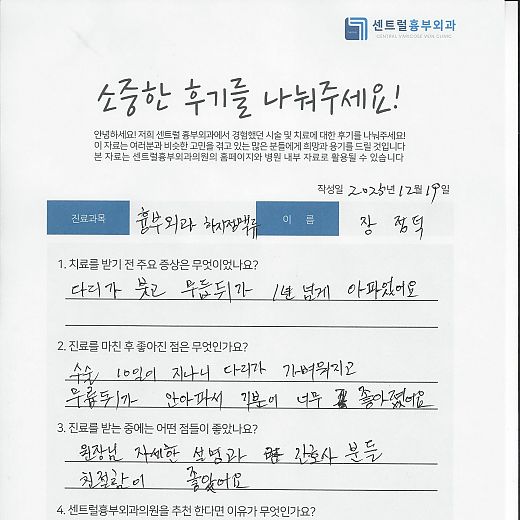 센트럴흉부외과
CENTRAL VARICOSE VEIN CLINIC
소중한 후기를 나눠주세요!
안녕하세요! 저희 센트럴 흉부외과에서 경험했던 시술 및 치료에 대한 후기를 나눠주세요!
이 자료는 여러분과 비슷한 고민을 겪고 있는 많은 분들에게 희망과 용기를 드릴 것입니다
본 자료는 센트럴흉부외과의원의 홈페이지와 병원 내부 자료로 활용될 수 있습니다
작성일 2025년 12월 19일
진료과목 흉부외과 하지정맥류 이 름 장 점덕
1. 치료를 받기 전 주요 증상은 무엇이었나요?
다리가 붓고 무릅뒤가 1년 넘게 아파왔어요
2. 진료를 마친 후 좋아진 점은 무엇인가요?
수술 10일이 지나니 다리가 가벼워지고
무릎뒤가 안아파서 기분이 너무 좋아졌어요
3. 진료를 받는 중에는 어떤 점들이 좋았나요?
원장님 자세한 설명과 간호사 분들
친절함이 좋았어요
4. 센트럴흉부외과의원을 추천 한다면 이유가 무엇인가요?